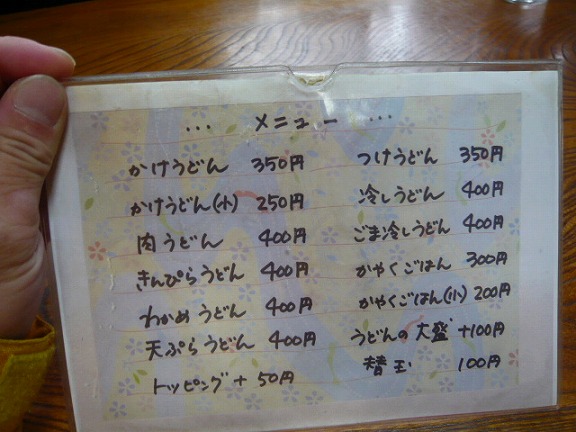 … メニュー …
かけうどん 350円
かけうどん(小) 250円
肉うどん 400円
きんぴらうどん 400円
わかめうどん 400円
天ぷらうどん 400円
トッピング+ 50円
つけうどん 350円
冷しうどん 400円
ごま冷しうどん 400円
かやくごはん 300円
かやくごはん(小) 200円
うどんの大盛 +100円
替玉 100円